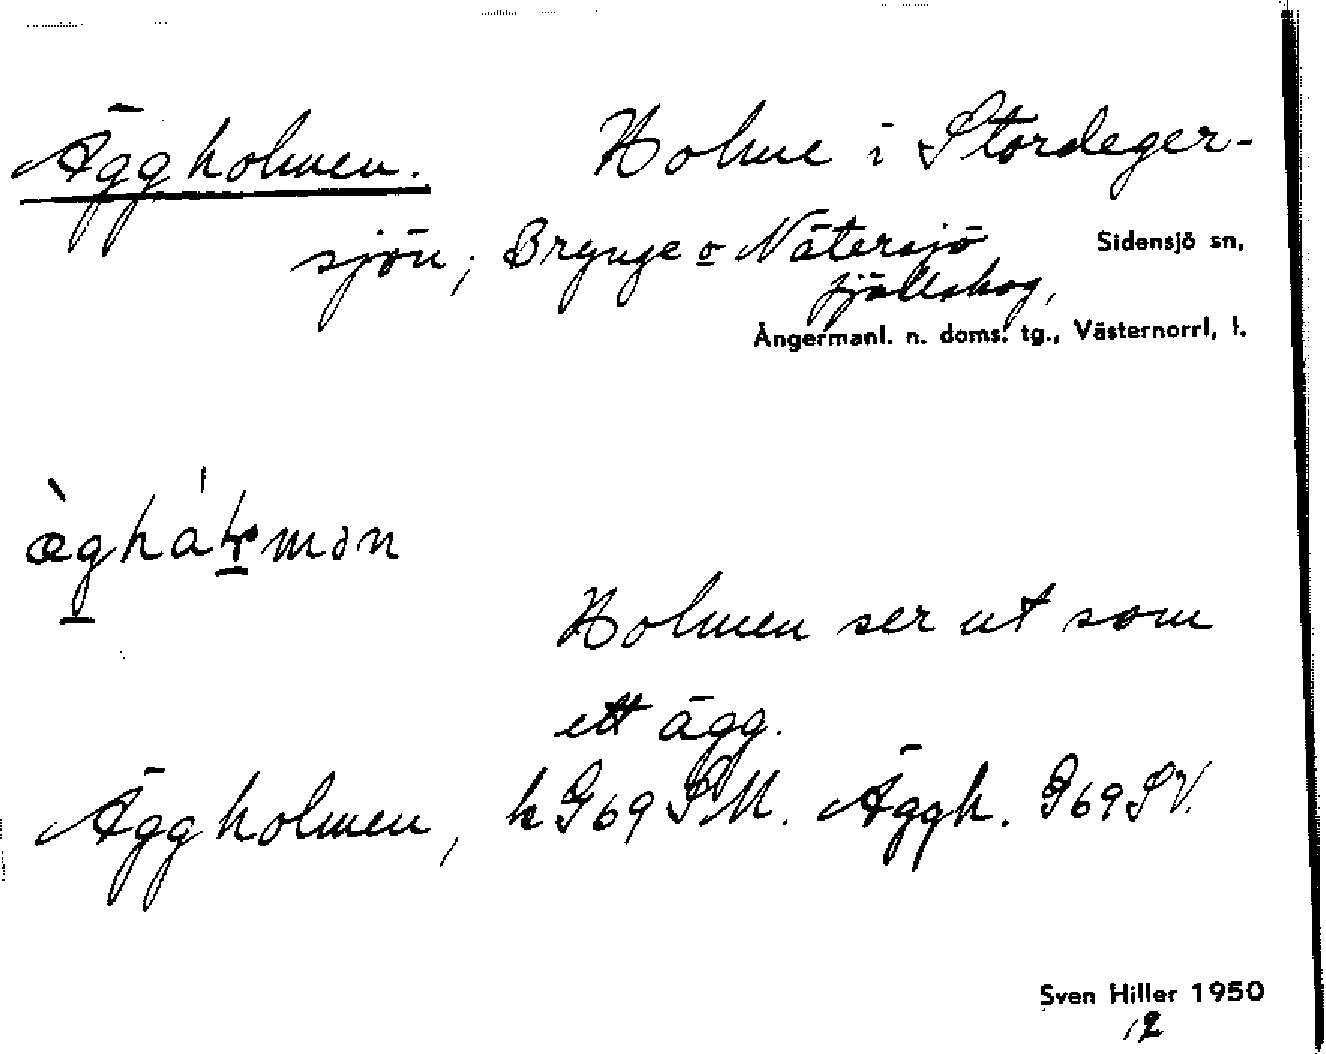 Äggholmen. Holme i Stordeger-
sjön; Brynge o Nätersjö Sidensjö sn,
fjällskog,
Ångermanl. n. doms. tg., Västernorrl. l.
Holmen ser ut som
ett ägg.
Äggholmen, h G69 SM. Äggh. G69 SV.
Sven Hiller 1950
12